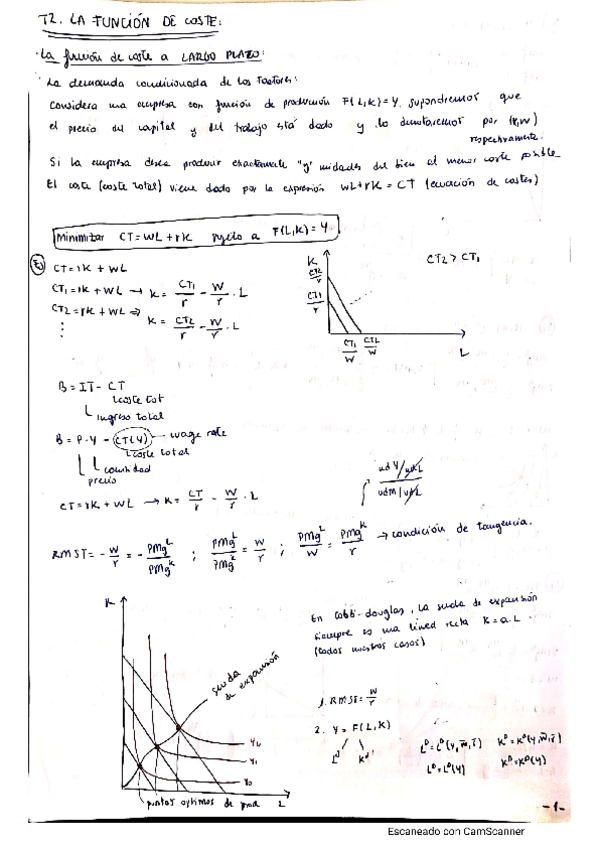 T2. LA FUNCIÓN DE COSTE:
La función de coste a LARGO PLAZO:
La demanda condicionada de los Factores:
Considera una empresa con función de producción F(L,K)=Y, supondremos que
el precio del capital y del trabajo está dado y lo denotaremos por (r,w)
respectivamente.
Si la empresa desea producir exactamente "y" unidades del bien al menor coste posible
El coste (coste total) viene dado por la expresión wL+rK = CT (ecuación de costes)
Minimizar CT=WL+rK sujeto a F(L,K)=Y
CT=rK + WL
CT1=rK + WL → K = CT1/r - W/r · L
CT2=rK + WL ⇒ K = CT2/r - W/r · L
K
CT2/r
CT1/r
CT1/W CT2/W
L
CT2 > CT1
B = IT - CT
coste tot
ingreso total
B = P·Y - CT(Y) wage rate
coste total
cantidad
precio
CT=rK + WL → K = CT/r - W/r · L
RMST = - W/r = - PMg^L/PMg^K ; PMg^L/PMg^K = W/r ; PMg^L/W = PMg^K/r → condición de tangencia.
K
senda de expansión
Y2
Y1
Y0
puntos optimos de prod L
En Cobb-Douglas, la senda de expansión
siempre es una línea recta K = a·L.
(todos nuestros casos)
1. RMST = W/r
2. Y = F(L,K)
L^D K^D
L^D = L^D(Y,w̄,r̄) K^D = K^D(Y,w̄,r̄)
L^D = L^D(Y) K^D = K^D(Y)
-1-
Escaneado con CamScanner